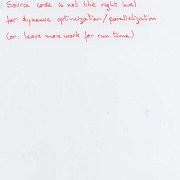 Source code is not the right level
for dynamic optimization/parallelization
(or: leave more work for run time)